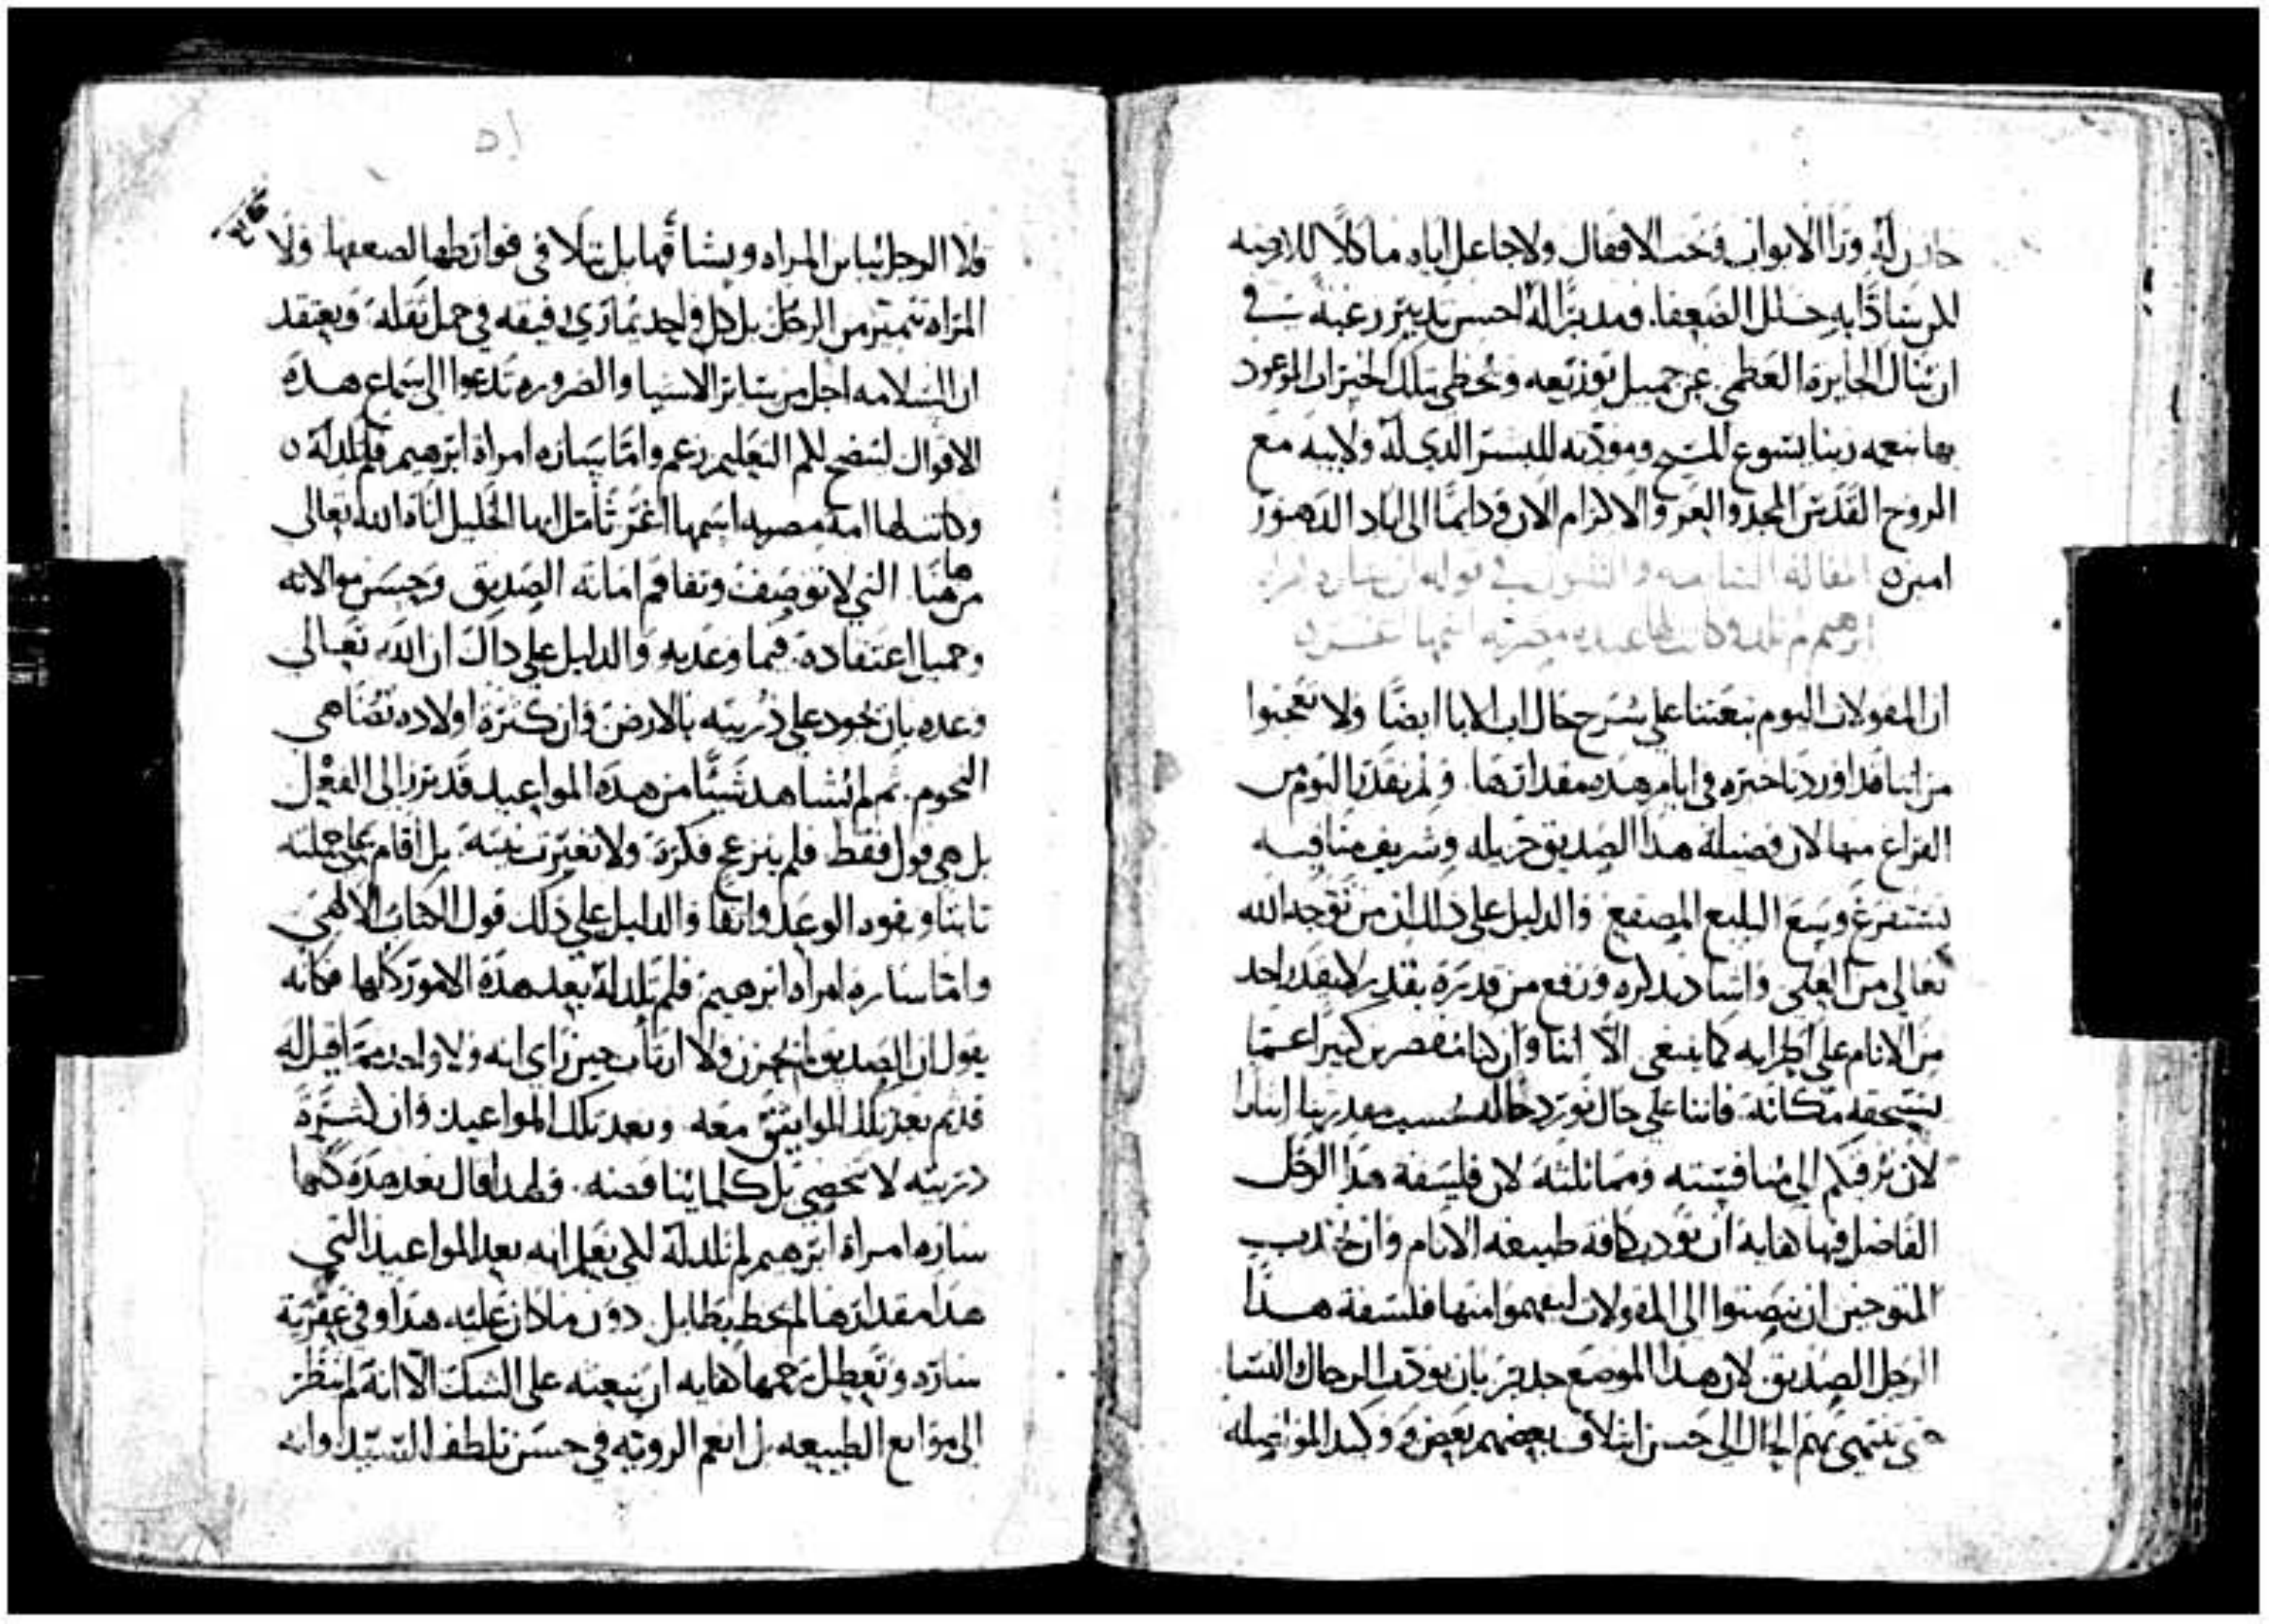 له ورا الابواب وتحت الاقفال ولا جاعل اياه ماكلا للارضه
لكن سَادًّا به خلل الضعفا. ومدبرًا له احسن تدبير رغبه في
ان تنال الجايزة العظمي عن جميل توزيعه وتحظي بتلك الخيرات الموعود
بها بنعمه ربنا يسوع المسيح ومودته للبشر الدي له ولابيه مع
الروح القدس المجد والعز والاكرام الان ودايمًا الى اباد الدهور
امين ٥ المقالة الثامنه والثلثون في قوله ان ساره امراه
ابرهيم لم تلد وكانت لها عبده مصريه اسمها اغر
ان المقولات اليوم تبعتنا علي شرح حال اب الابا ايضًا ولا تعجبوا
من اننا قد اوردنا خبره في ايام هده مقدارها. ولم نقدر اليوم من
الفراغ منها لان فضيلة هدا الصديق جزيله وشريف مناقبه
تستفرغ وسع البليغ المصقع والدليل على ذلك ان من توجه الله
تعالي من العلي واشاد بدكره ورفع من قدره بقدير لا يقدر احد
من الانام علي اطرايه كما ينبغي الا اننا وان كنا مقصرين كثيرًا عما
تستحقه مكانته فاننا علي حال نورد حاله بحسب مقدرتنا
لان نرقيكم الى منافسته ومماثلته لان فلسفة هدا الرجل
الفاضل فيها كفاية ان تودب كافة طبيعه الانام وان تجدب
المتوحين ان ينصتوا الى المقولات ليفهموا منها فلسفة هدا
الرجل الصديق لان هدا الموضع جدير بان يودب الرجال والنسا
حتي ينتهي بهم الحال الى حسن ايتلاف بعضهم بعض ووكيد المواصله
فلا الرجل يباين المراه ويشاقها بل يتلافي فوارطها لضعفها ولا
المراه تتميز من الرجل بل كل واحد يماري رفيقه في حمل ثقله ويعتقد
ان السلامه اجل من ساير الاشيا والضروره تدعوا الى سماع هده
الاقوال لتضح لكم التعليم زعم واما ساره امراة ابرهيم فلم تلد له ٥
وكانت لها امه مصريه اسمها اغر تامل ايها الخليل اناة الله تعالي
من هاهنا التي لا توصف وتفاقم امانة الصديق وحسن موالاته
وجميل اعتقاده. فيما وعد به والدليل علي داك ان الله تعالي
وعده بان يجود علي ذريته بالارض وان كثرة اولاده تضاهي
النجوم. ثم لم يشاهد شيًا من هده المواعيد قد برز الى الفعل
بل هي قول فقط. فلم ينزعج فكرة. ولا تغيرت نيته. بل اقام علي جملته
ثابتا وبقوه الوعد واثقا والدليل علي ذلك قول الكتاب الالهي
واما ساره امراه ابرهيم فلم تلد له بعد هدة الامور كلها فكانه
يقول ان الصديق لم يحزن ولا ارتاب حين راي انه ولا واحد مما قيل له
قد تم بعد تلك المواثيق معه. وبعد تلك المواعيد وان كثرة
دريته لا تحصي بل كلما يناقضه. فلهدا قال بعد هده كلها
ساره امراة ابرهيم لم تلد له لكي تعلم انه بعد المواعيد التي
هدا مقدارها لم يحظ بطايل دون ما كان عليه. هدا وفي عقرية
ساره وتعطل رحمها كفايه ان يبعثه على الشك الا انه لم ينظر
الى موانع الطبيعه بل انعم الرويه في حسن تلطف السيد وانه